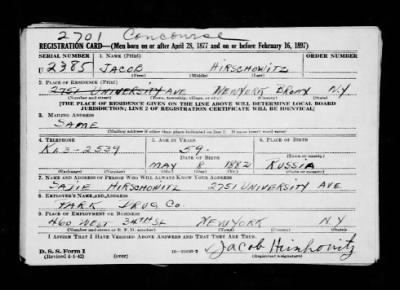 2701 Concourse
REGISTRATION CARD—(Men born on or after April 28, 1877 and on or before February 16, 1897)
SERIAL NUMBER 1. NAME (Print) ORDER NUMBER
U 2385 JACOB HIRSCHOWITZ
(First) (Middle) (Last)
2. PLACE OF RESIDENCE (Print)
2751 UNIVERSITY AVE NEW YORK BRONX N.Y.
(Number and street) (Town, township, village, or city) (County) (State)
[THE PLACE OF RESIDENCE GIVEN ON THE LINE ABOVE WILL DETERMINE LOCAL BOARD
JURISDICTION; LINE 2 OF REGISTRATION CERTIFICATE WILL BE IDENTICAL]
3. MAILING ADDRESS
SAME
[Mailing address if other than place indicated on line 2. If same insert word same]
4. TELEPHONE 5. AGE IN YEARS 6. PLACE OF BIRTH
KL3-2539 59
DATE OF BIRTH (Town or county)
MAY 8 1882 RUSSIA
(Exchange) (Number) (Mo.) (Day) (Yr.) (State or country)
7. NAME AND ADDRESS OF PERSON WHO WILL ALWAYS KNOW YOUR ADDRESS
SADIE HIRSCHOWITZ 2751 UNIVERSITY AVE
8. EMPLOYER'S NAME AND ADDRESS
PARK DRUG CO.
9. PLACE OF EMPLOYMENT OR BUSINESS
460 WEST 34TH ST NEW YORK N.Y
(Number and street or R. F. D. number) (Town) (County) (State)
I AFFIRM THAT I HAVE VERIFIED ABOVE ANSWERS AND THAT THEY ARE TRUE.
D. S. S. Form 1
(Revised 4-1-42) (over) Jacob Hirshowitz
(Registrant's signature)